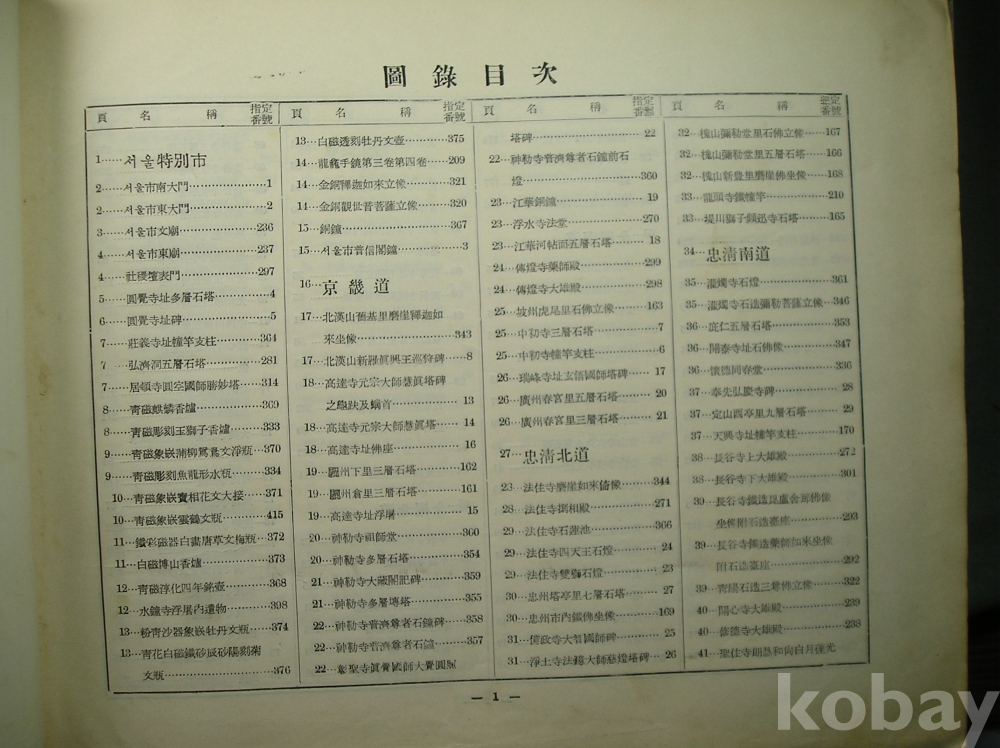 圖錄目次
頁 名稱 指定番號
1…서울特別市
2…서울市南大門……………1
2…서울市東大門……………2
3…서울市文廟……………236
4…서울市東廟……………237
4…社稷壇表門……………297
5…圓覺寺址多層石塔………4
6…圓覺寺址碑……………5
7…莊義寺址幢竿支柱……364
7…弘濟洞五層石塔………281
7…居頓寺圓空國師勝妙塔…314
8…靑磁麒麟香爐…………369
8…靑磁彫刻王獅子香爐…333
9…靑磁象嵌蒲柳鴛鴦文淨瓶…370
9…靑磁彫刻魚龍形水瓶…334
10…靑磁象嵌寶相花文大接…371
10…靑磁象嵌雲鶴文瓶……415
11…鐵彩磁器白畵唐草文梅瓶…372
11…白磁博山香爐…………373
12…靑磁淳化四年銘壺……368
12…水鐘寺浮屠內遺物……398
13…粉靑沙器象嵌牡丹文瓶…374
13…靑花白磁鐵砂辰砂陽刻菊
文瓶………………………376
頁 名稱 指定番號
13…白磁透刻牡丹文壺……375
14…龍龕手鏡第三卷第四卷…209
14…金銅釋迦如來立像……321
14…金銅觀世音菩薩立像…320
15…銅鐘…………………367
15…서울市普信閣鐘………3
16…京畿道
17…北漢山舊基里磨崖釋迦如
來坐像…………………343
17…北漢山新羅眞興王巡狩碑…8
18…高達寺元宗大師慧眞塔碑
之龜趺及螭首…………13
18…高達寺元宗大師慧眞塔…14
18…高達寺址佛座…………16
19…驪州下里三層石塔……162
19…驪州倉里三層石塔……161
19…高達寺址浮屠…………15
20…神勒寺祖師堂…………360
20…神勒寺多層石塔………354
21…神勒寺大藏閣記碑……359
21…神勒寺多層塼塔………355
22…神勒寺普濟尊者石鐘碑…358
22…神勒寺普濟尊者石鐘…357
22…彰聖寺眞覺國師大覺圓照
塔碑……………………22
22…神勒寺普濟尊者石鐘前石
燈………………………360
23…江華銅鐘……………19
23…浮水寺法堂…………270
23…江華河帖面五層石塔…18
24…傳燈寺藥師殿………299
24…傳燈寺大雄殿………298
25…坡州虎尾里石佛立像…163
25…中初寺三層石塔………7
25…中初寺幢竿支柱………6
26…瑞峰寺址玄悟國師塔碑…17
26…廣州春宮里五層石塔…20
26…廣州春宮里三層石塔…21
27…忠淸北道
23…法住寺磨崖如來倚像…344
28…法住寺捌相殿………271
29…法住寺石蓮池………366
29…法住寺四天王石燈……24
29…法住寺雙獅石燈………23
30…忠州塔亭里七層石塔…27
30…忠州市內鐵佛坐像…169
31…億政寺大智國師碑……25
31…淨土寺法鏡大師慈燈塔碑…26
頁 名稱 指定番號
32…槐山彌勒堂里石佛立像…167
32…槐山彌勒堂里五層石塔…166
32…槐山新豊里磨崖佛坐像…168
33…龍頭寺鐵幢竿………210
33…堤川獅子頻迅寺石塔…165
34…忠淸南道
35…灌燭寺石燈…………361
35…灌燭寺石造彌勒菩薩立像…346
36…庇仁五層石塔………353
36…開泰寺址石佛像……347
36…懷德同春堂…………336
37…奉先弘慶寺碑………28
37…定山西亭里九層石塔…29
37…天興寺址幢竿支柱…170
38…長谷寺上大雄殿……272
38…長谷寺下大雄殿……301
39…長谷寺鐵造毘盧舍那佛像
坐像附石造臺座………293
39…長谷寺鐵造藥師如來坐像
附石造臺座……………292
39…靑陽石造三尊佛立像…322
40…開心寺大雄殿………239
40…修德寺大雄殿………238
41…聖住寺朗慧和尙白月葆光
— 1 —
kobay